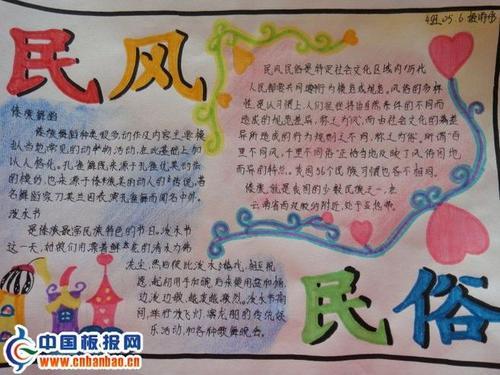 民风
民风民俗是特定社会文化区域内历代
人民都要共同遵守的行为模式或规范。风俗的多样
性,是以习惯上,人们往往将由自然条件的不同而
造成的规范差异,称之为"风";而由社会文化的差
异所造成的行为规则之不同,称之为"俗"。所谓"百
里不同风,千里不同俗"正恰当地反映了风俗因地
而异的特点。我国56个民族习惯也各不相同。
傣族就是我国的少数民族之一,在
云南省西双版纳附近,处于亚热带。
傣族舞蹈
傣族舞蹈种类很多,动作及内容主要模
拟当地常见的动物的活动,在此基础上加
以人格化。孔雀舞既来源于孔雀优美的动态
的模仿,也来源于傣族美的动人的传说,著
名舞蹈家刀美兰因表演孔雀舞而闻名中外。
泼水节
是傣族最富民族特色的节日。泼水节
这一天,对傣们用漂着鲜花的清水为佛
洗尘,然后彼此泼水嬉戏,相互祝
愿。起初用手和碗,后来便用盆和桶,
边泼边歌,越泼越激烈。泼水节期
间,举行放飞灯、赛龙船的传统娱
乐活动,和各种歌舞晚会。
民俗
中国板报网
www.cnbanbao.cn